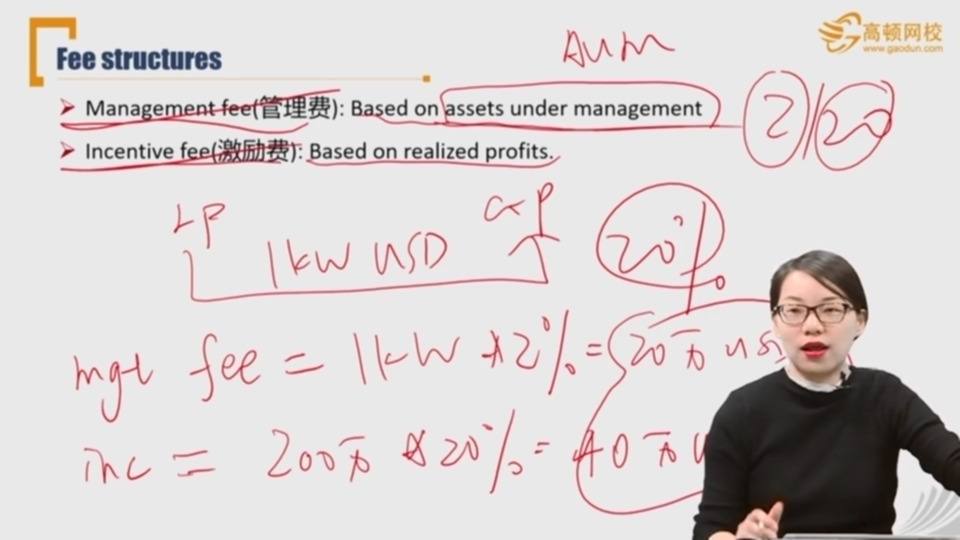 Fee structures
高顿网校
www.gaodun.com
AUM
Management fee(管理费): Based on assets under management
2/20
Incentive fee(激励费): Based on realized profits.
LP
GP
1kW USD
20%
mgt fee = 1kW * 2% = 20万 US
inc = 200万 * 20% = 40万 U